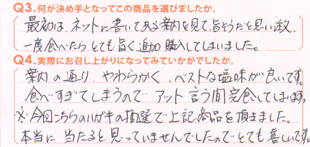 Q3.何が決め手となってこの商品を選びましたか。
最初は、ネットに書いてある案内を見て、旨そうだと思い注文
一度食べたらとても旨く追加購入してしまいました。
Q4.実際にお召し上がりになってみていかがでしたか。
案内の通り、やわらかく、ベストな塩味が良いです。
食べすぎてしまうので アット言う間完食してしまいます。
※今回こちらのハガキの抽選で上記商品を頂きました。
本当に当たると思っていませんでしたのでとても喜しいです。